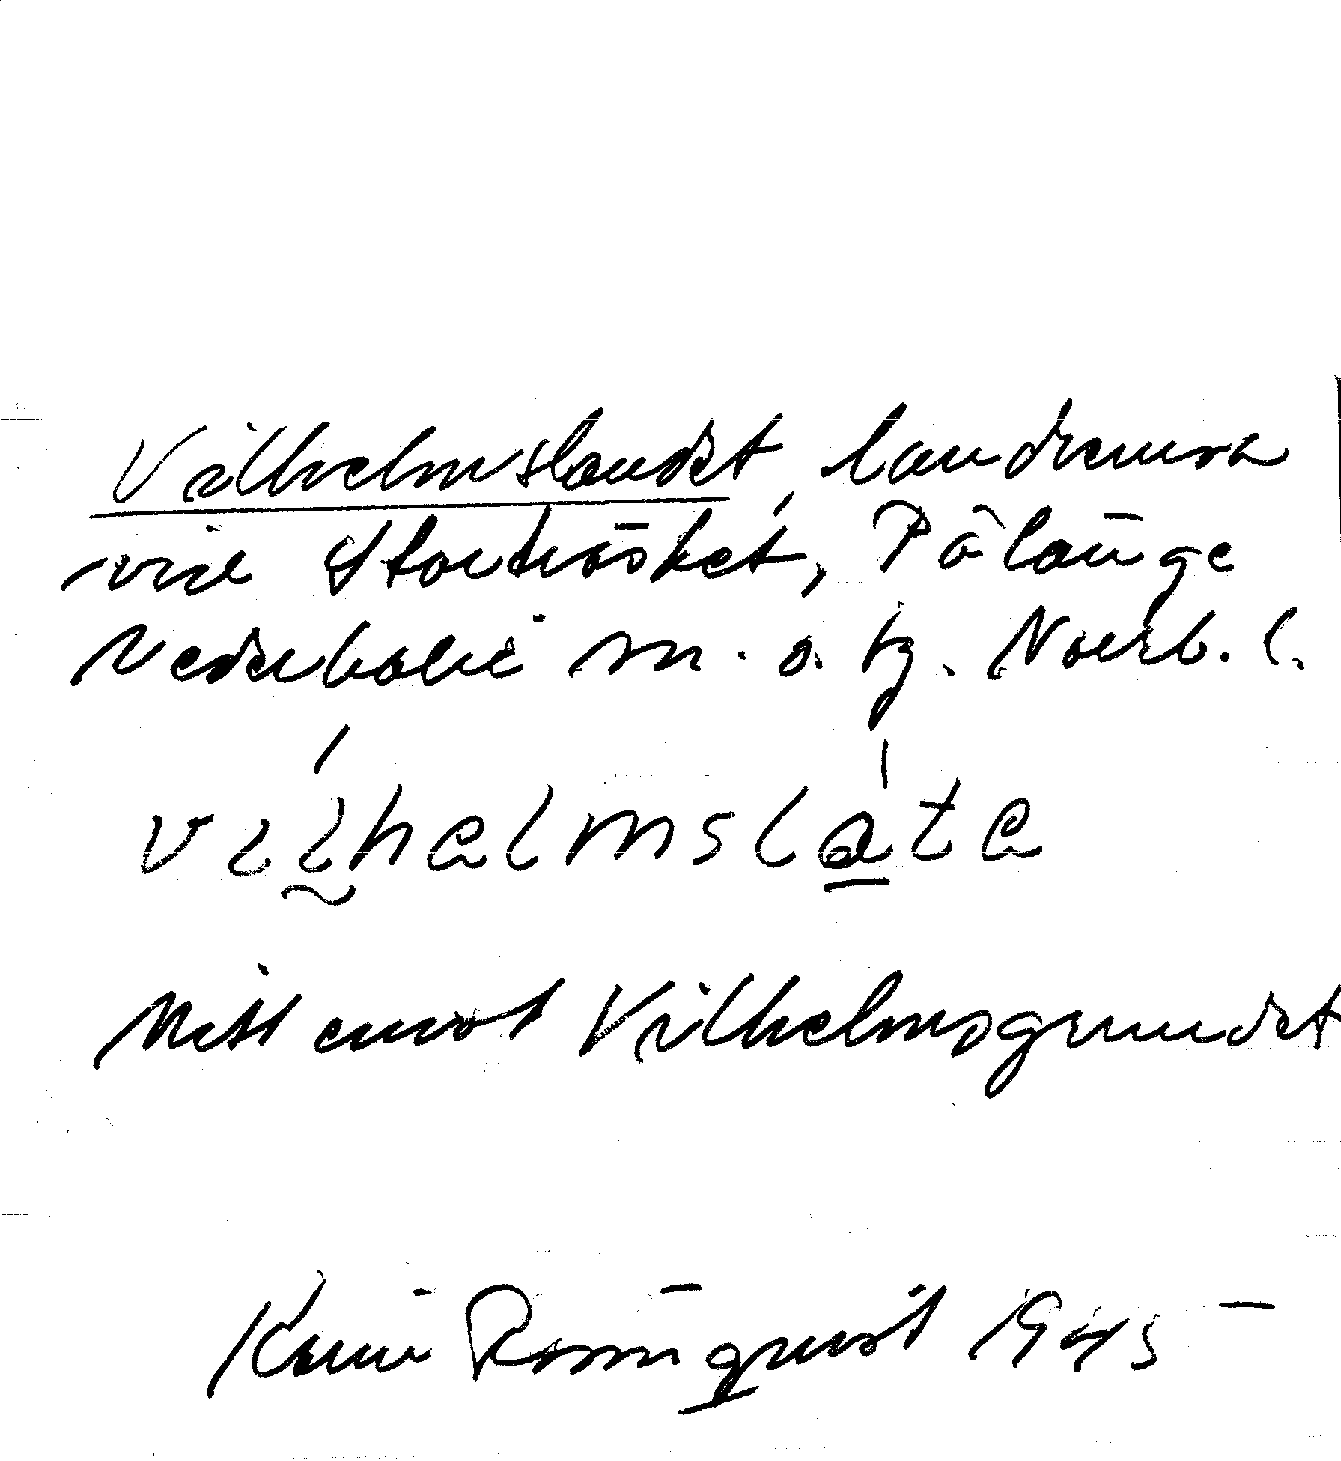 Vilhelmslandet, landremsa
vid Storträsket, Pålänge
Nederkalix sn. o. tg. Norrb. l.
vilhelmslata
Mitt emot Vilhelmsgrundet
Rönnqvist 1945